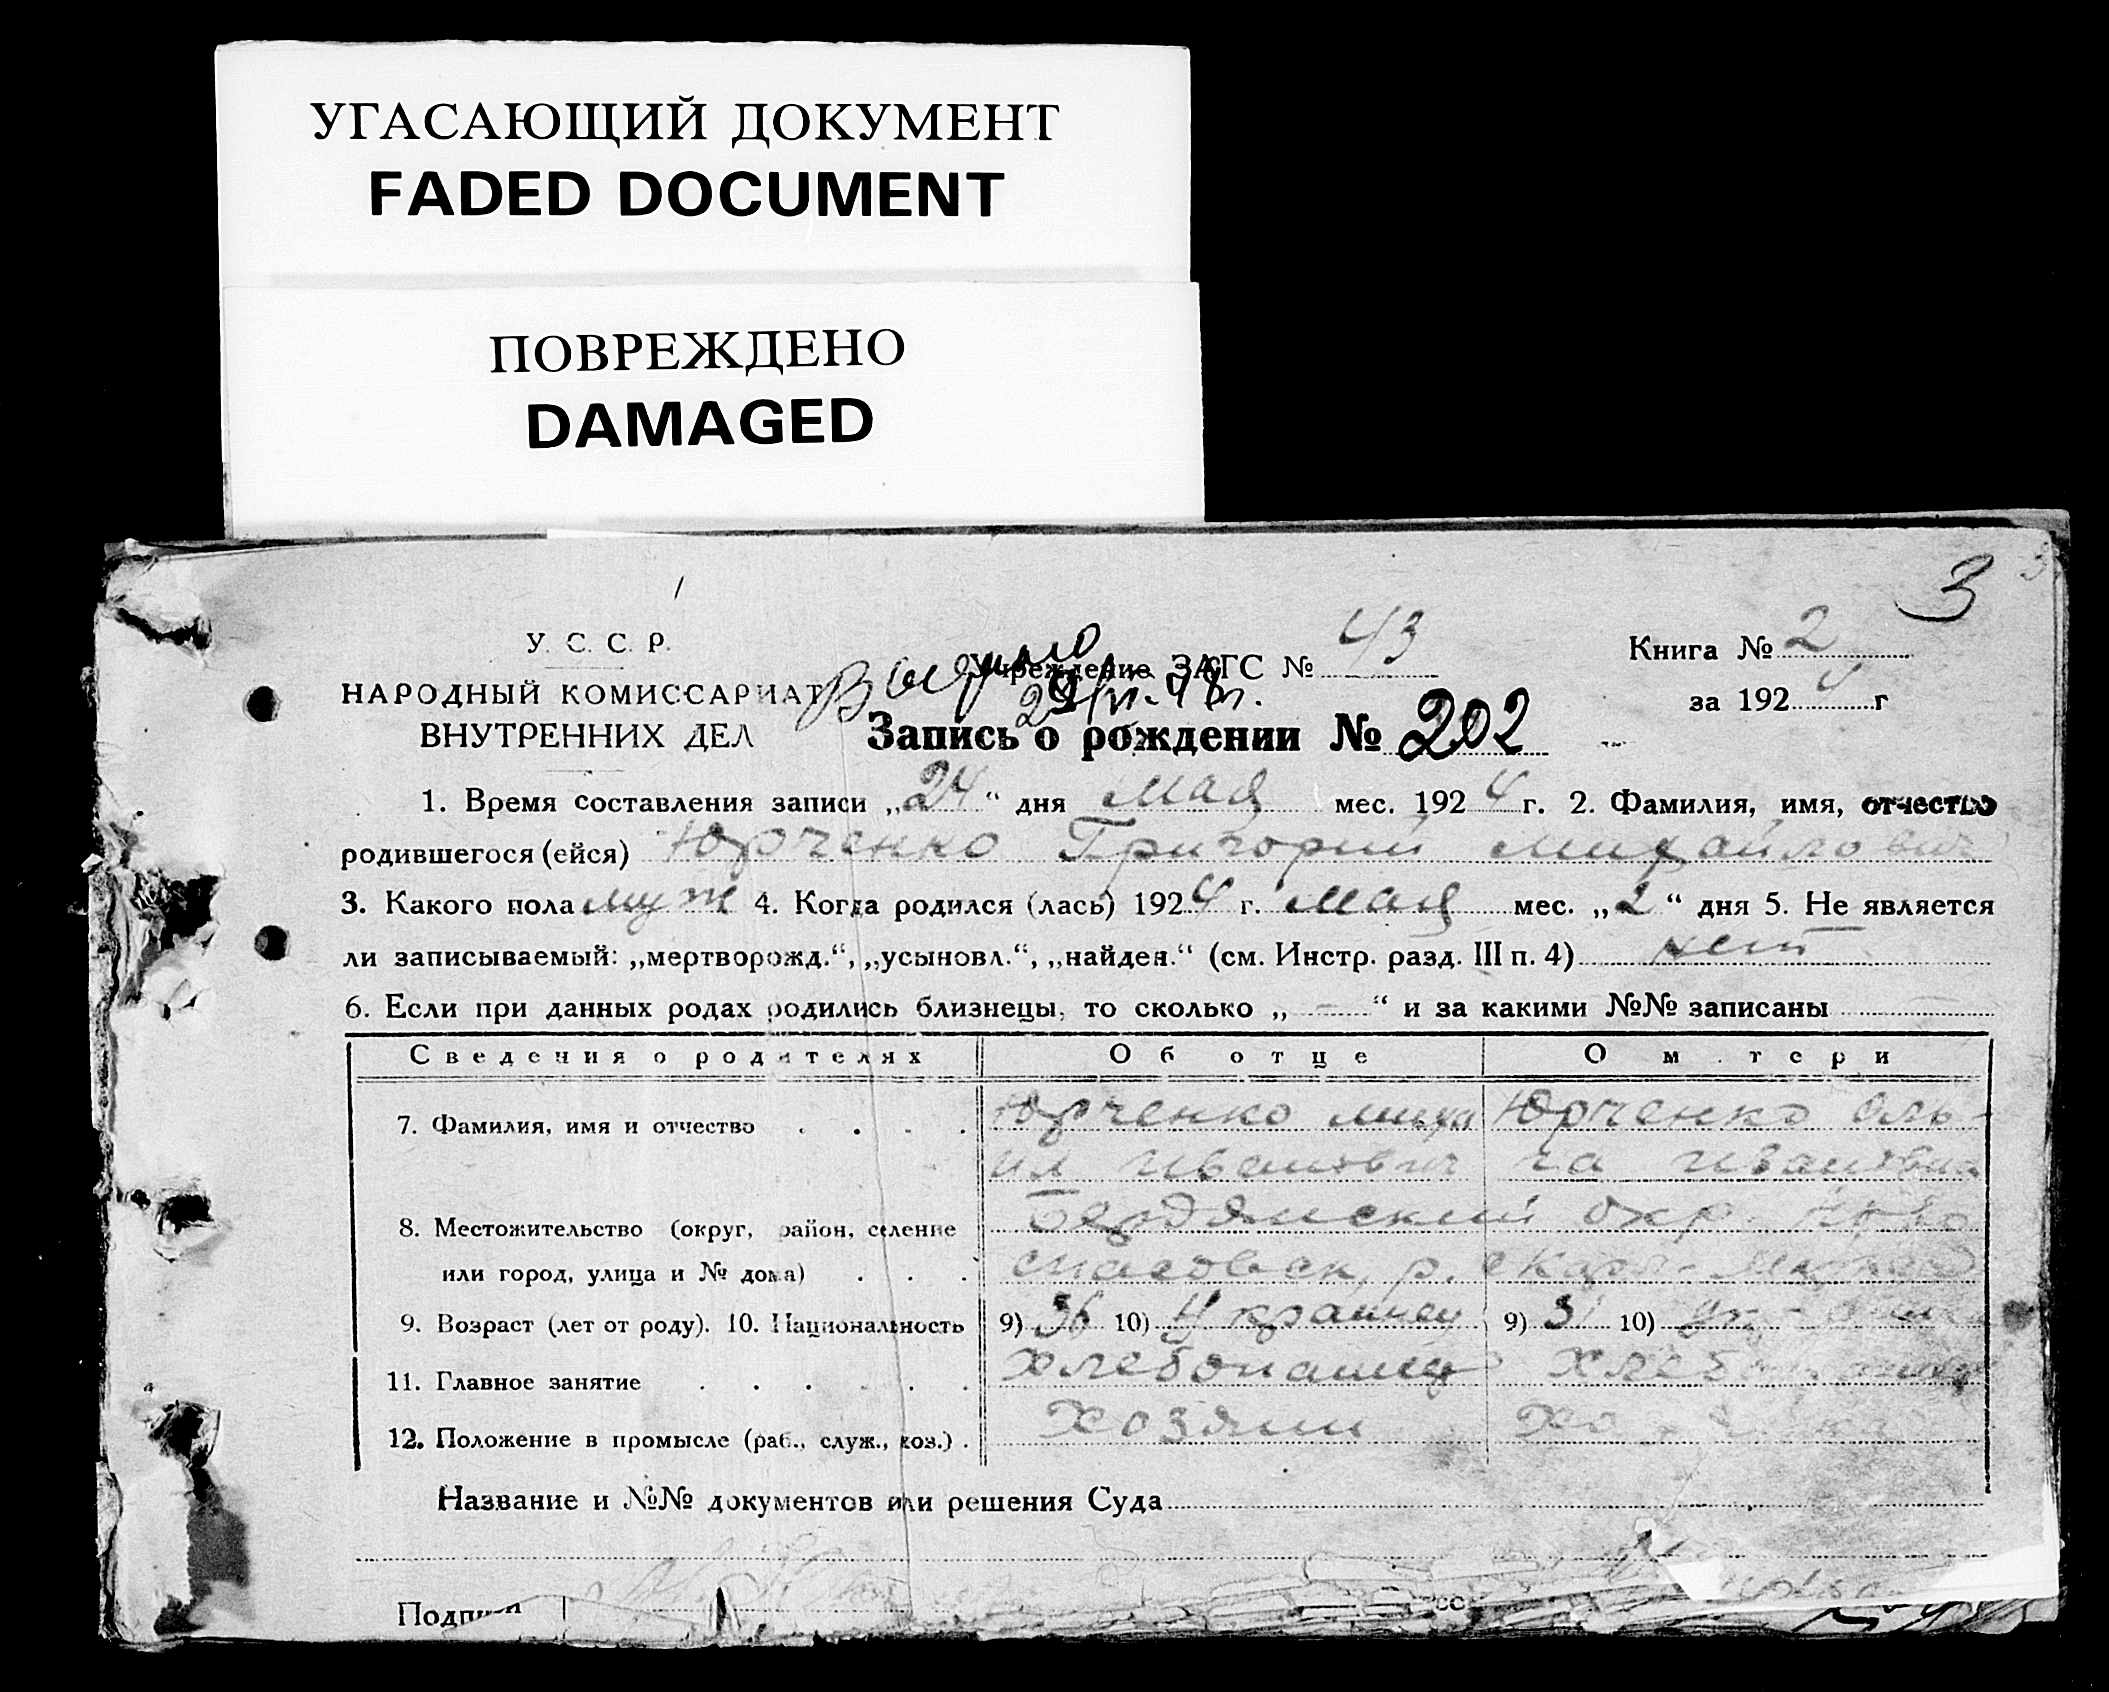 УГАСАЮЩИЙ ДОКУМЕНТ
FADED DOCUMENT
ПОВРЕЖДЕНО
DAMAGED
3
У. С. С. Р.
НАРОДНЫЙ КОМИССАРИАТ
ВНУТРЕННИХ ДЕЛ
Учреждение ЗАГС № 43
Книга № 2
за 1924 г
Запись о рождении № 202
1. Время составления записи „24“ дня мая мес. 1924 г. 2. Фамилия, имя, отчество
родившегося (ейся) Юрченко Григорий Михайлович
3. Какого пола муж 4. Когда родился (лась) 1924 г. мая мес. „2“ дня 5. Не является
ли записываемый: „мертворожд.“, „усыновл.“, „найден.“ (см. Инстр. разд. III п. 4) нет
6. Если при данных родах родились близнецы, то сколько „ - “ и за какими №№ записаны
Сведения о родителях Об отце О матери
7. Фамилия, имя и отчество Юрченко Миха Юрченко Оль-
ил Иванович га Ивановна
8. Местожительство (округ, район, селение Бердянский окр. Ново
или город, улица и № дома) спасовск. р.
9. Возраст (лет от роду). 10. Национальность 9) 36 10) Украинец 9) 31 10)
11. Главное занятие Хлебопашец
12. Положение в промысле (раб., служ., хоз.) . Хозяин
Название и №№ документов или решения Суда
Подписи